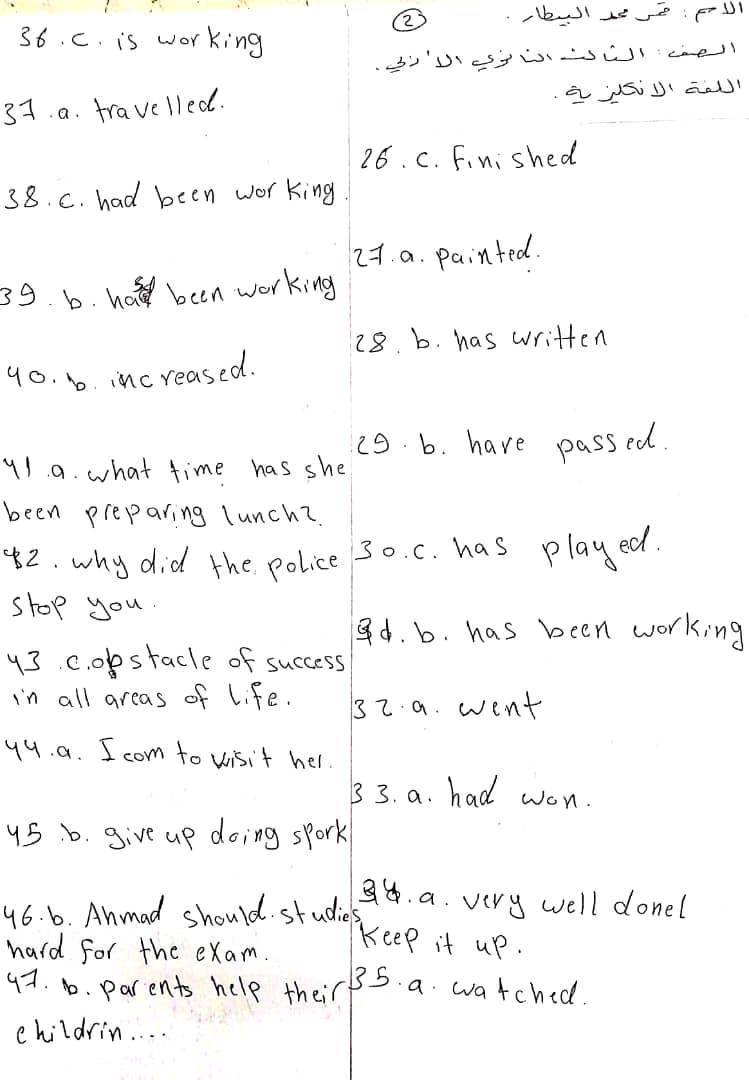 ②
الاسم : قمر محمد البيطار .
الصف : الثالث الثانوي الأدبي .
اللغة الانكليزية .
26 . c. finished
27 . a. painted.
28 . b. has written
29 . b. have passed.
30 . c. has played.
31 . b. has been working
32 . a. went
33 . a. had won.
34 . a. very well done!
keep it up.
35 . a. watched.
36 . c. is working
37 . a. travelled.
38 . c. had been working.
39 . b. had been working
40 . b. increased.
41 . a. what time has she
been preparing lunch?
42 . why did the police
stop you.
43 . c. obstacle of success
in all areas of life.
44 . a. I com to visit her.
45 . b. give up doing spork
46 . b. Ahmad should studies
hard for the exam.
47 . b. parents help their
childrin....